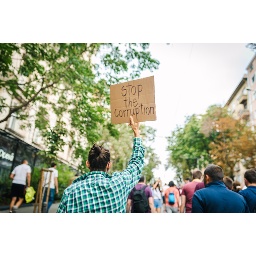 STOP
the
Corruption